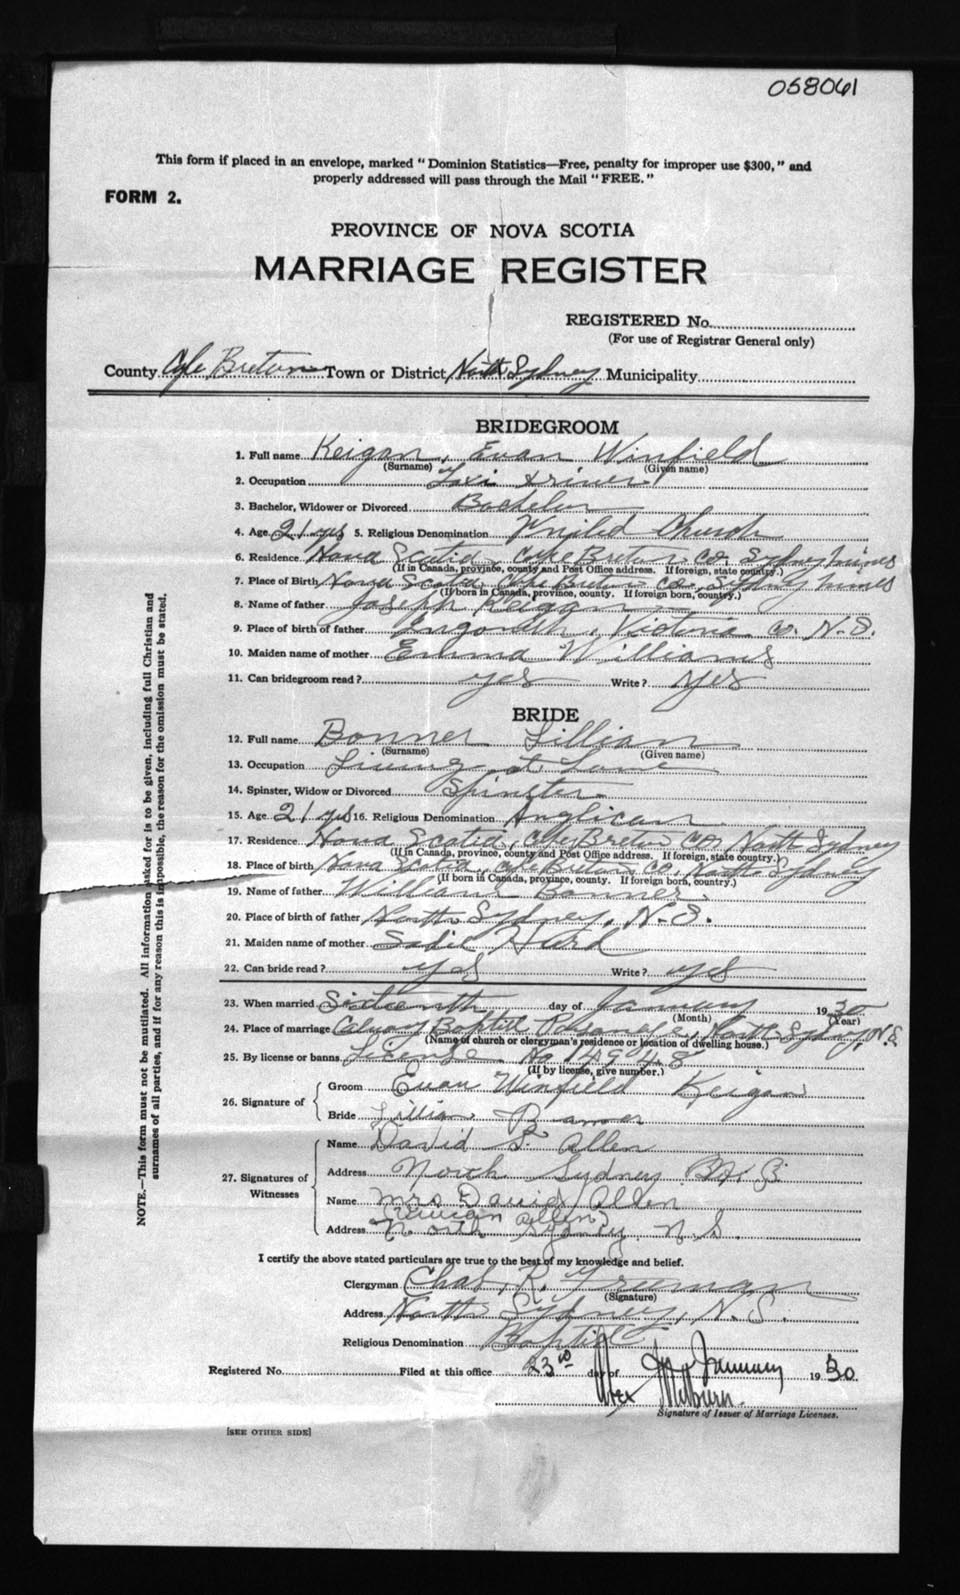 058061
This form if placed in an envelope, marked "Dominion Statistics—Free, penalty for improper use $300," and
properly addressed will pass through the Mail "FREE."
FORM 2.
PROVINCE OF NOVA SCOTIA
MARRIAGE REGISTER
REGISTERED No.
(For use of Registrar General only)
County Cape Breton Town or District North Sydney Municipality
BRIDEGROOM
1. Full name Keigan, Evan Winfield
(Surname) (Given name)
2. Occupation Taxi driver
3. Bachelor, Widower or Divorced Bachelor
4. Age 21 yrs 5. Religious Denomination United Church
6. Residence Nova Scotia, Cape Breton co, Sydney Mines
(If in Canada, province, county and Post Office address. If foreign, state country.)
7. Place of Birth Nova Scotia, Cape Breton co, Sydney Mines
(If born in Canada, province, county. If foreign born, country.)
8. Name of father Joseph Keigan
9. Place of birth of father Ingonish, Victoria co. N.S.
10. Maiden name of mother Emma Williams
11. Can bridegroom read? yes Write? yes
BRIDE
12. Full name Bonner Lillian
(Surname) (Given name)
13. Occupation Living at home
14. Spinster, Widow or Divorced Spinster
15. Age 21 yrs 16. Religious Denomination Anglican
17. Residence Nova Scotia, Cape Breton co, North Sydney
(If in Canada, province, county and Post Office address. If foreign, state country.)
18. Place of birth Nova Scotia, Cape Breton Co, North Sydney
(If born in Canada, province, county. If foreign born, country.)
19. Name of father William Bonner
20. Place of birth of father North Sydney, N.S.
21. Maiden name of mother Sadie
22. Can bride read? yes Write? yes
23. When married Sixteenth day of January 1930
(Month) (Year)
24. Place of marriage Calvary Baptist Parsonage, North Sydney, N.S
(Name of church or clergyman's residence or location of dwelling house.)
25. By license or banns License No 14948
(If by license, give number.)
26. Signature of
Groom Evan Winfield Keigan
Bride Lillian Bonner
27. Signatures of Witnesses
Name David S. Allen
Address North Sydney
Name Mrs David Allen
Allen)
Address North Sydney, N.S.
I certify the above stated particulars are true to the best of my knowledge and belief.
Clergyman Chas. R. Freeman
(Signature)
Address North Sydney, N.S.
Religious Denomination Baptist
Registered No. Filed at this office 23rd day of January 1930
Alex Milburn
Signature of Issuer of Marriage Licenses.
[SEE OTHER SIDE]
NOTE.—This form must not be mutilated. All information asked for is to be given, including full Christian and
surnames of all parties, and if for any reason this is impossible, the reason for the omission must be stated.